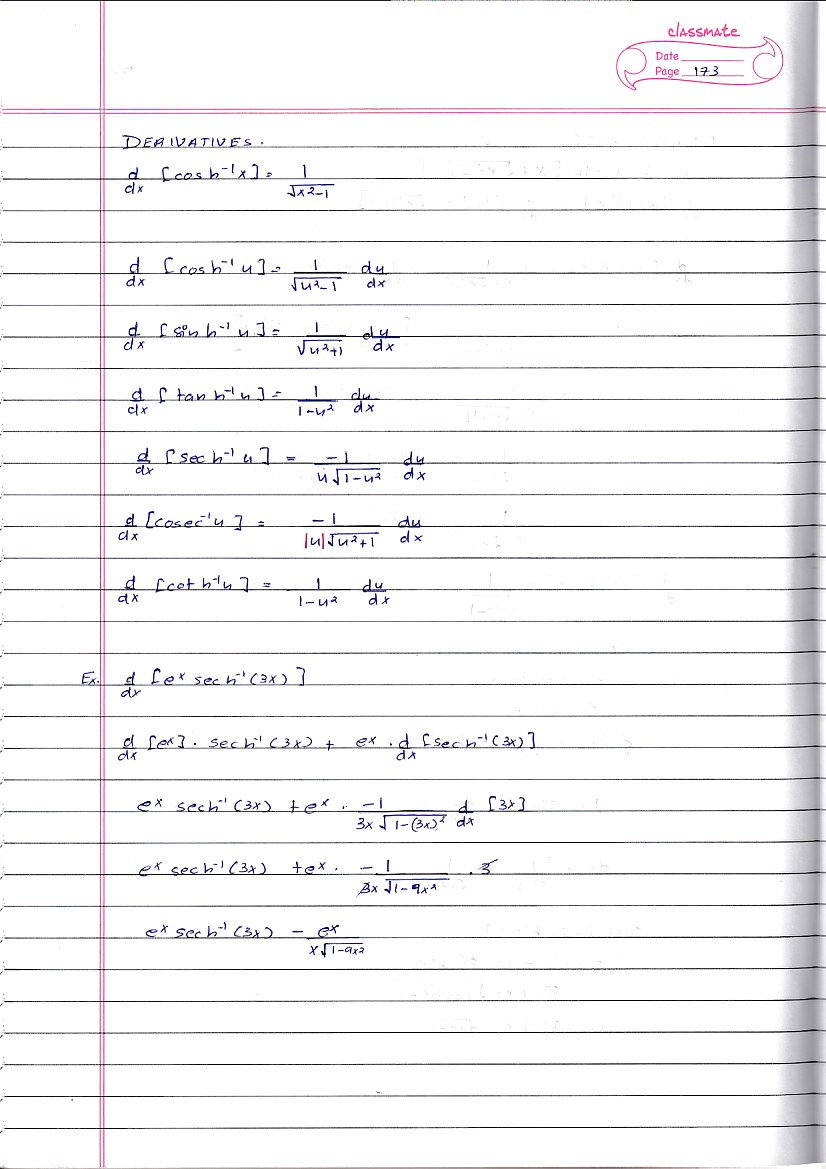 classmate
Date
Page 173
DERIVATIVES.
d/dx [cosh⁻¹x] = 1/√x²-1
d/dx [cosh⁻¹ u] = 1/√u²-1 du/dx
d/dx [sinh⁻¹ u] = 1/√u²+1 du/dx
d/dx [tanh⁻¹u] = 1/1-u² du/dx
d/dx [sech⁻¹ u] = -1/u√1-u² du/dx
d/dx [cosec⁻¹u] = -1/|u|√u²+1 du/dx
d/dx [coth⁻¹u] = 1/1-u² du/dx
Ex. d/dx [eˣ sech⁻¹(3x)]
d/dx [eˣ]. sech⁻¹(3x) + eˣ . d/dx [sech⁻¹(3x)]
eˣ sech⁻¹(3x) + eˣ . -1/3x√1-(3x)² d/dx [3x]
eˣ sech⁻¹(3x) + eˣ. -1/3x√1-9x² .3
eˣ sech⁻¹(3x) - eˣ/x√1-9x²